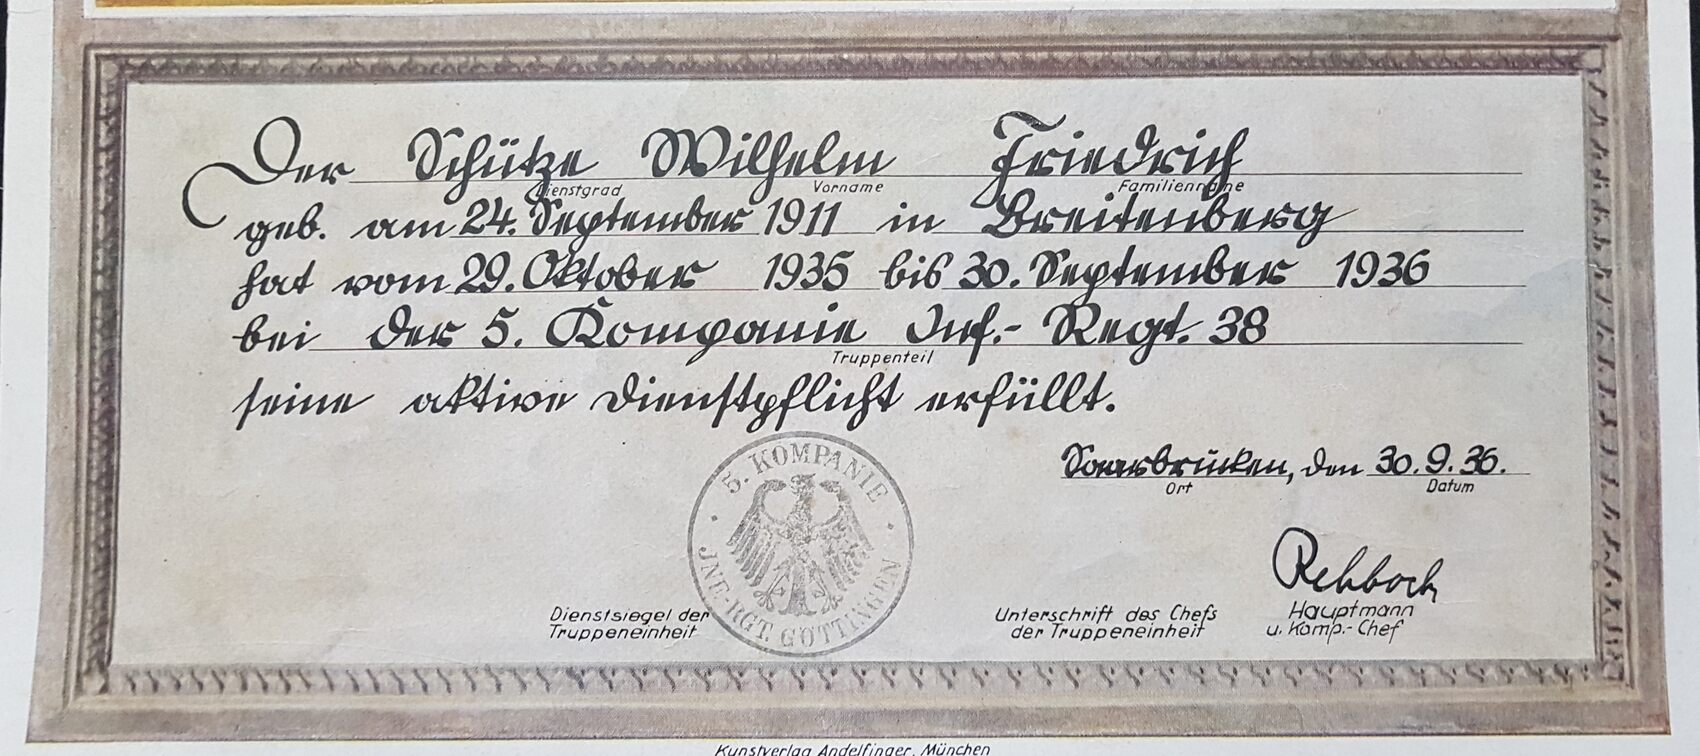 Der Schütze Wilhelm Friedrich
Dienstgrad Vorname Familienname
geb. am 24. September 1911 in Breitenberg
hat vom 29. Oktober 1935 bis 30. September 1936
bei der 5. Kompanie Inf.- Regt. 38
Truppenteil
seine aktive Dienstpflicht erfüllt.
Saarbrücken, den 30.9.36.
Ort Datum
5. KOMPANIE
JNF.-RGT. GÖTTINGEN
Dienstsiegel der
Truppeneinheit
Unterschrift des Chefs
der Truppeneinheit
Rehboch
Hauptmann
u. Komp.- Chef
Kunstverlag Andelfinger, München